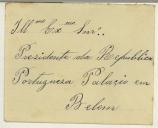 Ill.mo Ex.mo Snr.
Presidente da Republica
Portugueza Palacio em
Belem